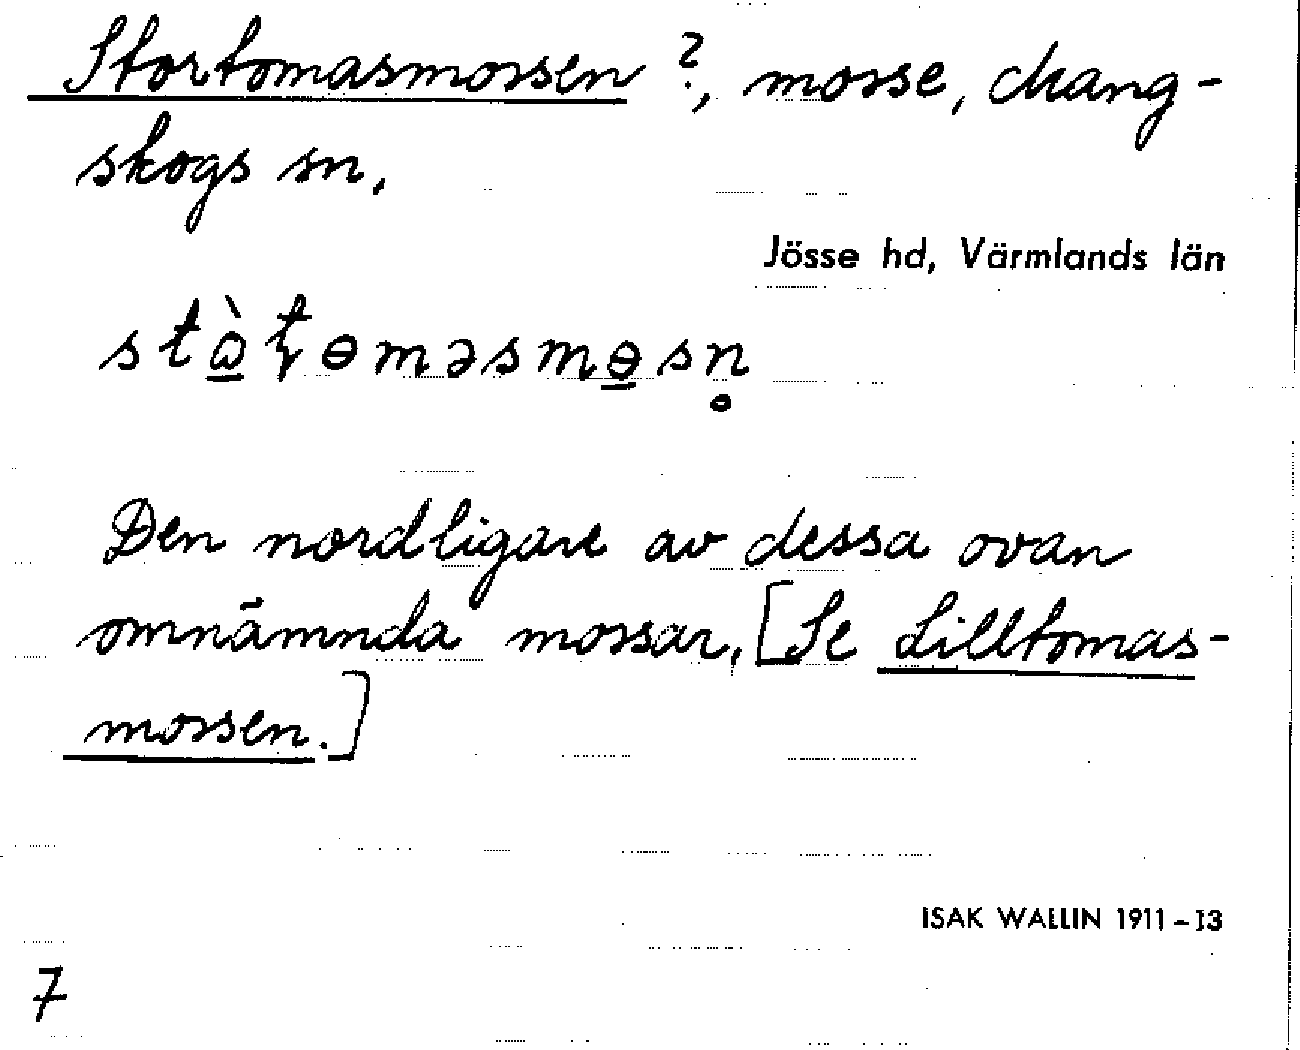 Stortomasmossen ?, mosse, Mang-
skogs sn,
Jösse hd, Värmlands län
Den nordligare av dessa ovan
omnämnda mossar, [Se Lilltomas-
mossen.]
ISAK WALLIN 1911-13
7